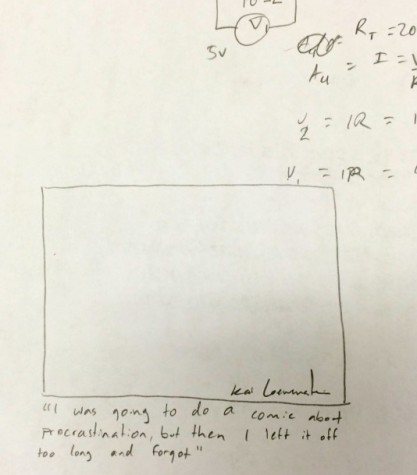 V₁
5v
R_T = 20
A₄ = I =
V₂ = IR =
V₁ = IR =
"I was going to do a comic about
Procrastination, but then I left it off
too long and forgot"